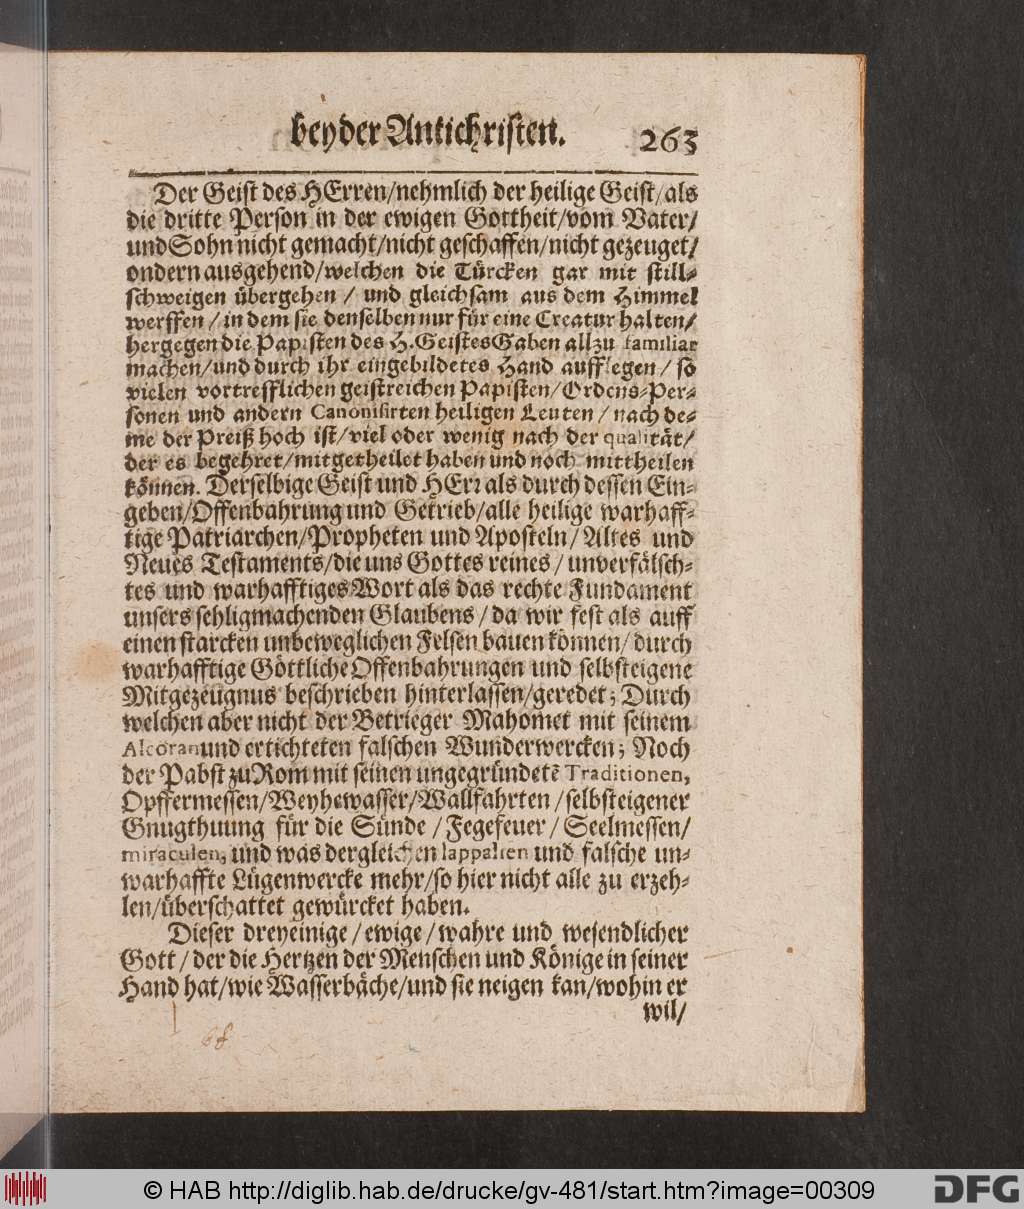 beyder Antichristen. 263
Der Geist des HErren/nehmlich der heilige Geist/als
die dritte Person in der ewigen Gottheit/vom Vater/
und Sohn nicht gemacht/nicht geschaffen/nicht gezeuget/
ondern ausgehend/welchen die Türcken gar mit still-
schweigen übergehen / und gleichsam aus dem Himmel
werffen / in dem sie denselben nur für eine Creatur halten/
hergegen die Papisten des H. Geistes Gaben allzu familiar
machen/und durch ihr eingebildetes Hand aufflegen / so
vielen vortrefflichen geistreichen Papisten/Ordens-Per-
sonen und andern Canonisirten heiligen Leuten / nach de-
me der Preiß hoch ist/viel oder wenig nach der qualität/
der es begehret/mitgetheilet haben und noch mittheilen
können. Derselbige Geist und HErr als durch dessen Ein-
geben/Offenbahrung und Getrieb/alle heilige warhaff-
tige Patriarchen/Propheten und Aposteln/Altes und
Neues Testaments/die uns Gottes reines / unverfälsch-
tes und warhafftiges Wort als das rechte Fundament
unsers sehligmachenden Glaubens / da wir fest als auff
einen starcken unbeweglichen Felsen bauen können/ durch
warhafftige Göttliche Offenbahrungen und selbsteigene
Mitgezeugnus beschrieben hinterlassen/geredet; Durch
welchen aber nicht der Betrieger Mahomet mit seinem
Alcoran und ertichteten falschen Wunderwercken; Noch
der Pabst zu Rom mit seinen ungegründetē Traditionen,
Opffermessen/Weyhewasser/Wallfahrten /selbsteigener
Gnugthuung für die Sünde / Fegefeuer / Seelmessen/
miraculen, und was dergleichen lappalien und falsche un-
warhaffte Lügenwercke mehr/so hier nicht alle zu erzeh-
len/überschattet gewürcket haben.
Dieser dreyeinige / ewige / wahre und wesendlicher
Gott / der die Hertzen der Menschen und Könige in seiner
Hand hat/wie Wasserbäche/und sie neigen kan/wohin er
wil/
68
© HAB http://diglib.hab.de/drucke/gv-481/start.htm?image=00309
DFG